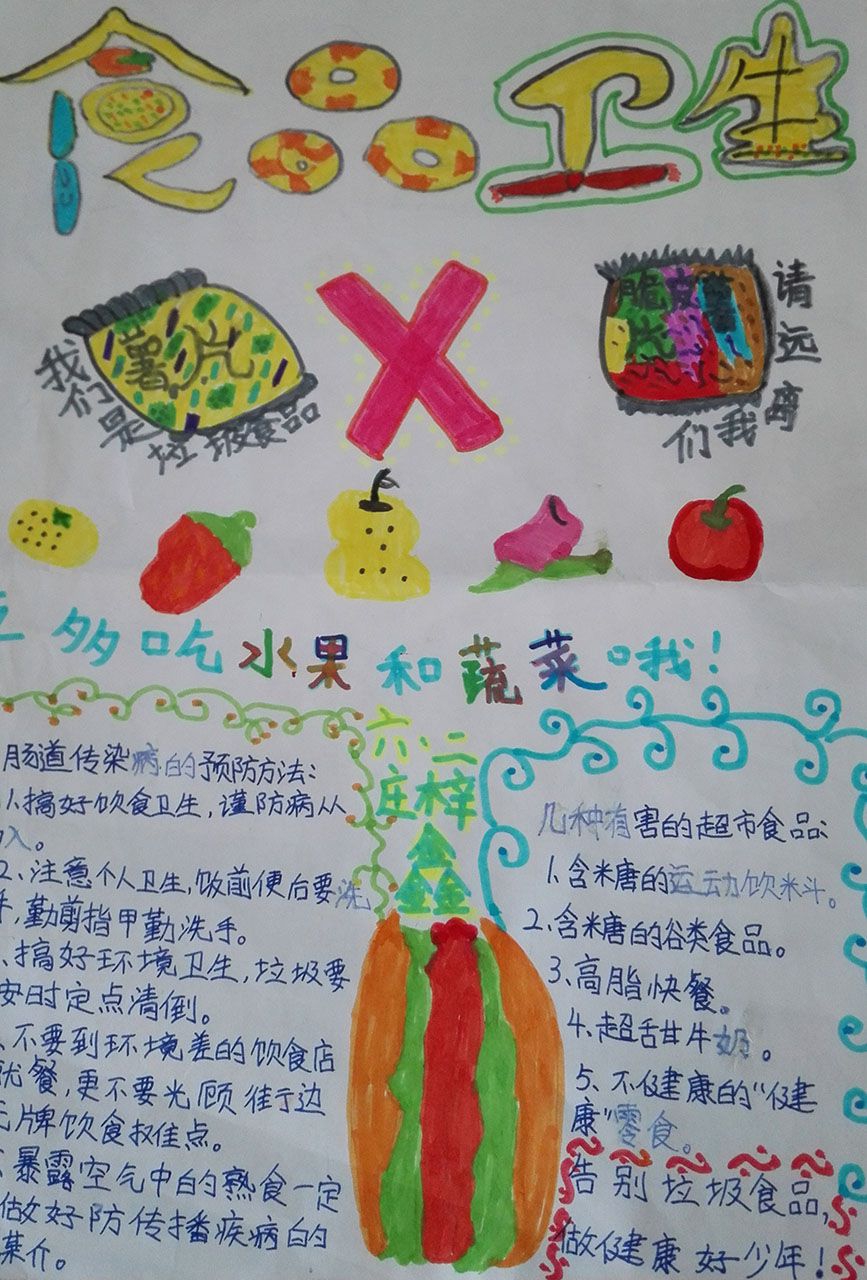 食品卫生
薯片
我们是垃圾食品
脆皮薯
片
请远离
我们
多吃水果和蔬菜哦！
六·二
庄梓鑫
肠道传染病的预防方法：
1、搞好饮食卫生，谨防病从
入。
2、注意个人卫生，饭前便后要洗
手，勤剪指甲勤洗手。
、搞好环境卫生，垃圾要
按时定点清倒。
、不要到环境差的饮食店
就餐，更不要光顾街边
无牌饮食
暴露空气中的熟食一定
做好防传播疾病的
媒介。
几种有害的超市食品：
1、含米唐的运动饮米斗。
2、含米唐的谷类食品。
3、高脂快餐。
4、超甜牛奶。
5、不健康的“健
康”零食。
告别垃圾食品，
做健康好少年！